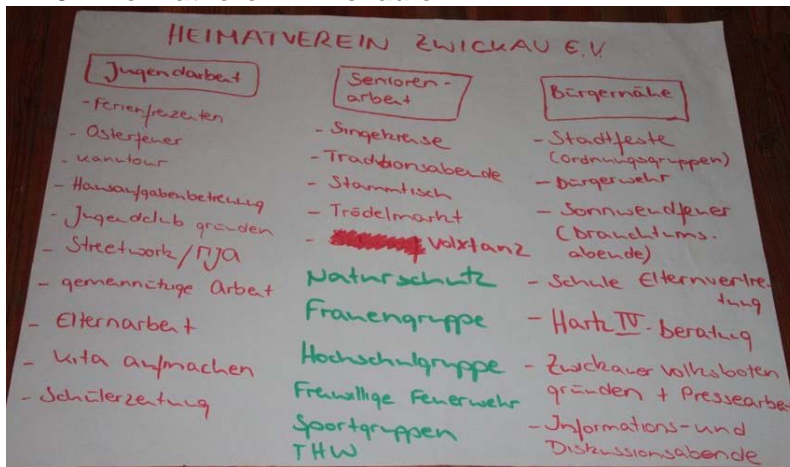 HEIMATVEREIN ZWICKAU E.V.
Jugendarbeit
- Ferienfreizeiten
- Osterfeuer
- Kanutour
- Hausaufgabenbetreuung
- Jugendclub gründen
- Streetwork/MJA
- gemeinnützige Arbeit
- Elternarbeit
- Kita aufmachen
- Schülerzeitung
Senioren-
arbeit
- Singekreise
- Traditionsabende
- Stammtisch
- Trödelmarkt
- Volxtanz
Naturschutz
Frauengruppe
Hochschulgruppe
Freiwillige Feuerwehr
Sportgruppen
THW
Bürgernähe
- Stadtfeste
(Ordnungsgruppen)
- Bürgerwehr
- Sonnwendfeuer
(Brauchtums-
abende)
- Schule Elternvertre-
tung
- Hartz IV-beratung
- Zwickauer Volksboten
gründen + Pressearbe
- Informations- und
Diskussionsabende